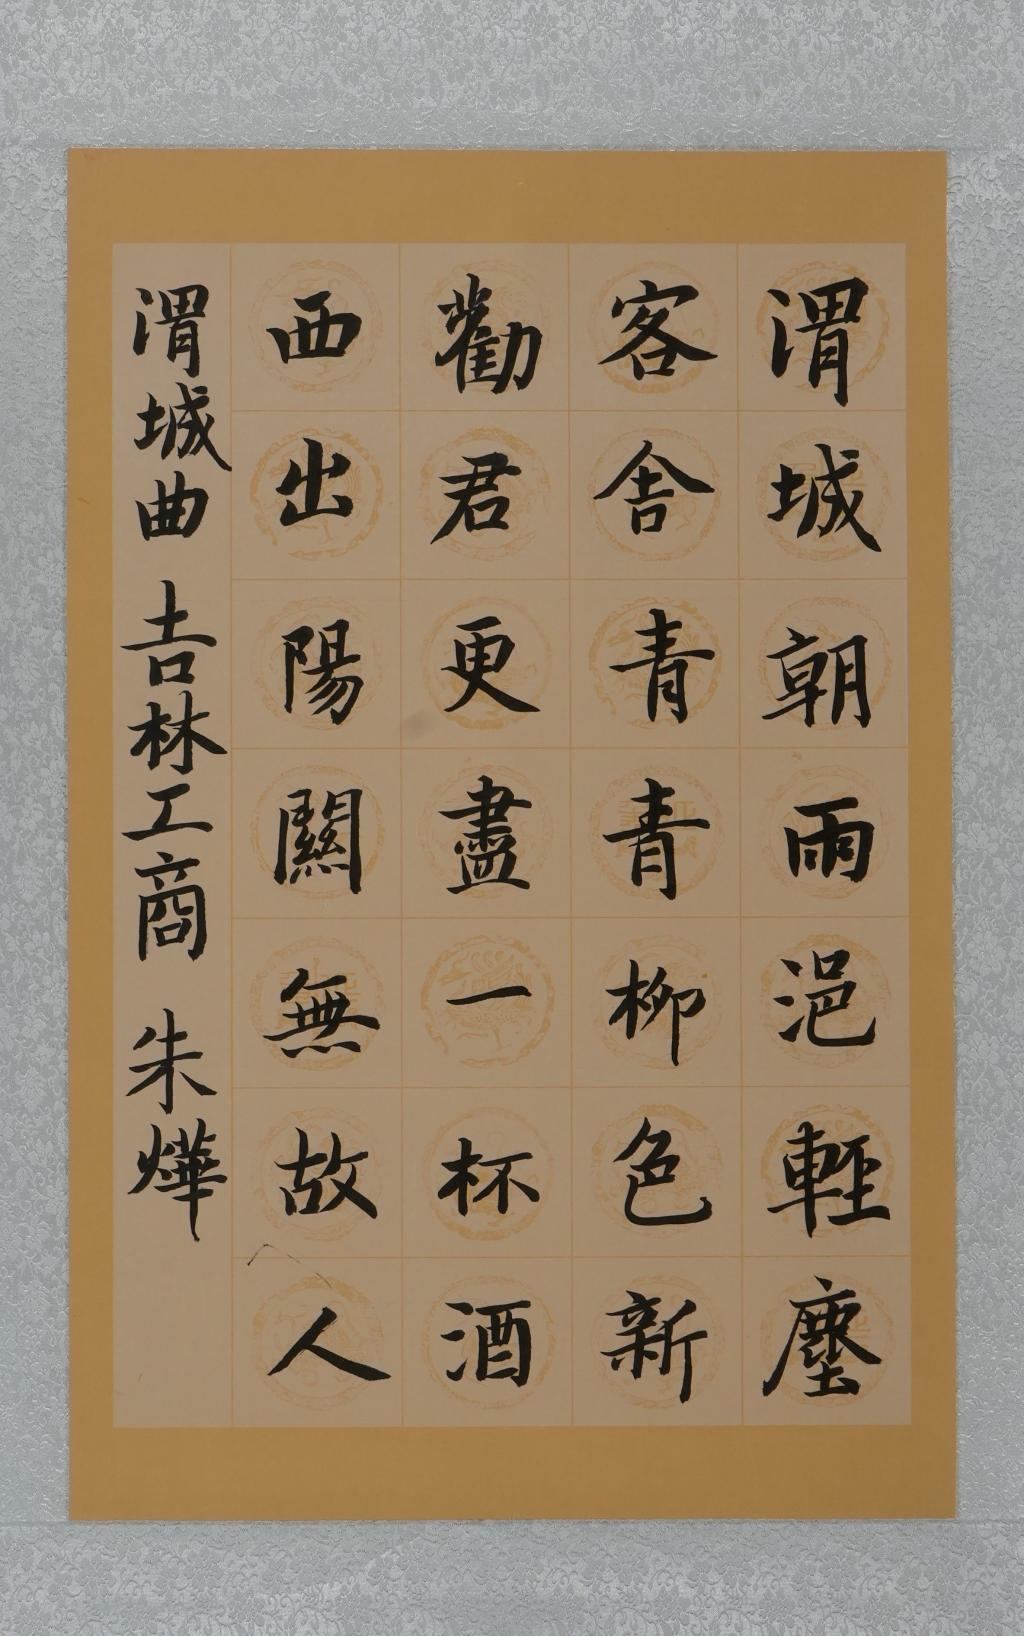 渭城朝雨浥輕塵
客舍青青柳色新
勸君更盡一杯酒
西出陽關無故人
渭城曲 吉林工商 朱燁